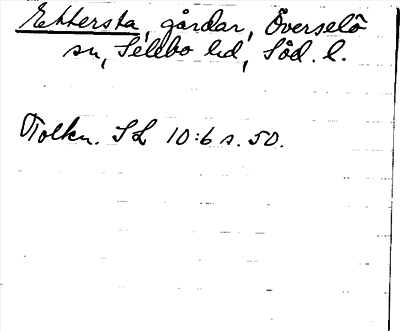 Ettersta, gårdar, Överselö
sn, Selebo hd, Söd. l.
Tolkn. SL 10:6 s. 50.